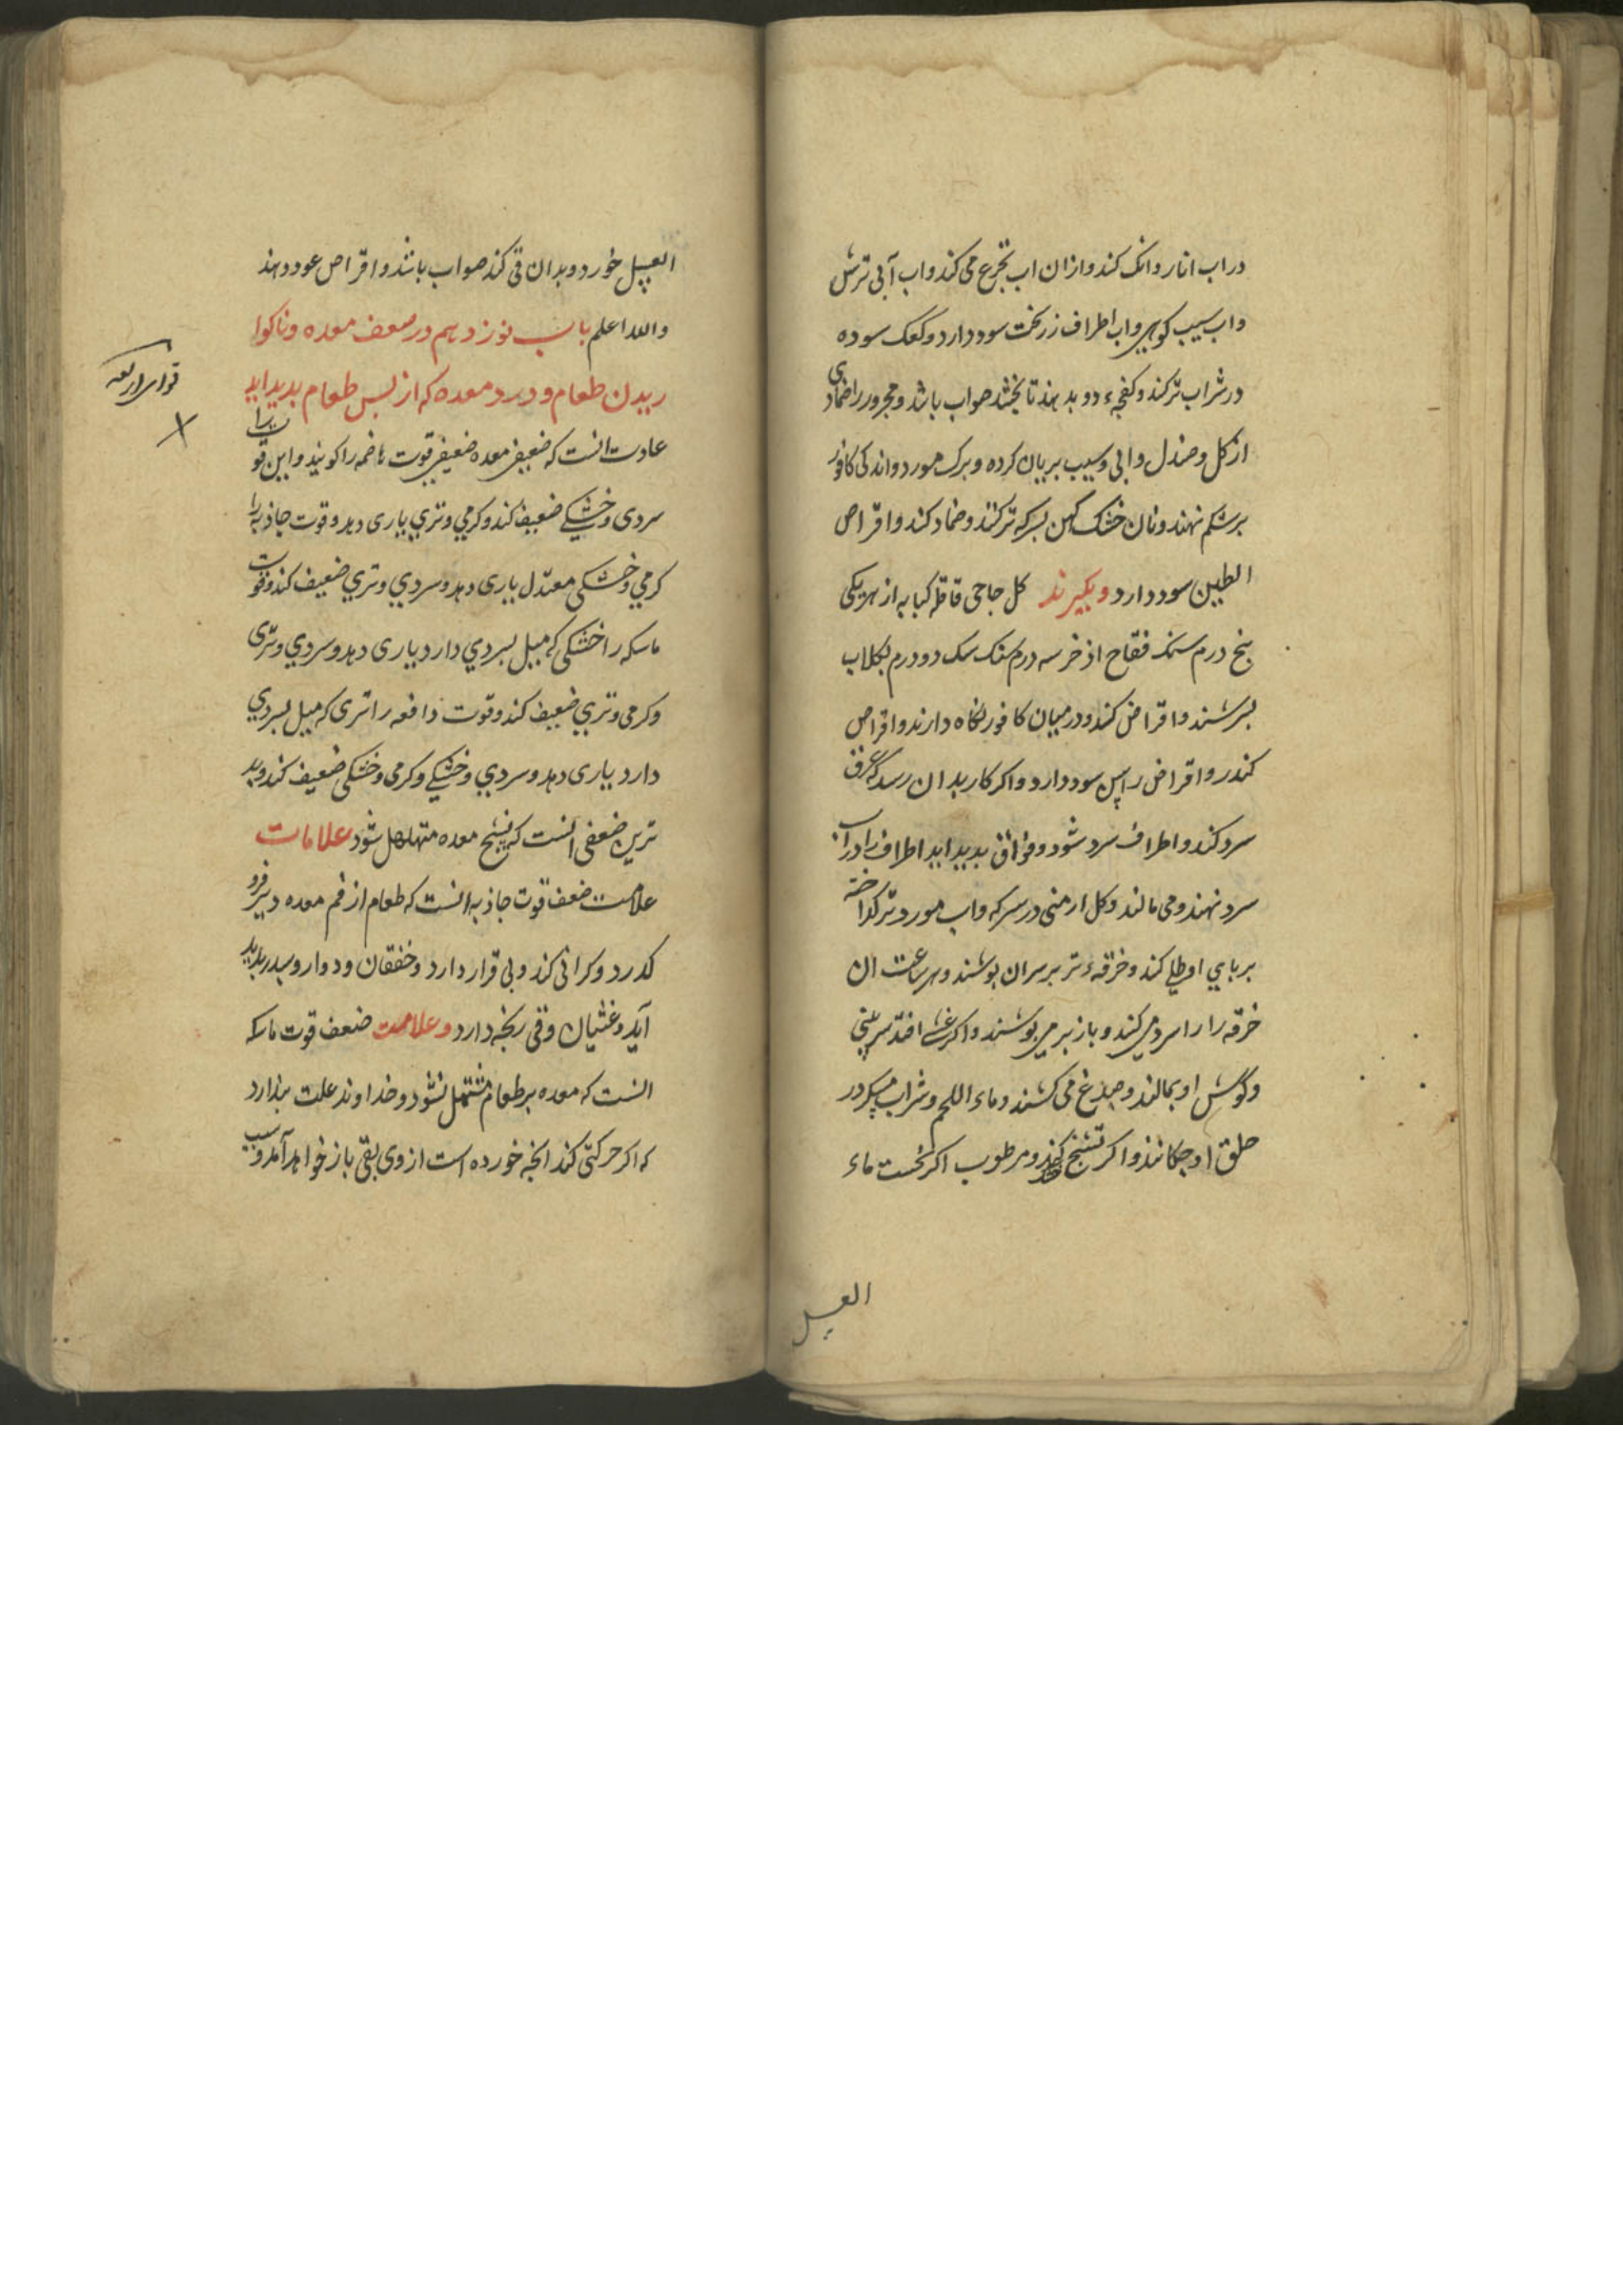 در اب انار وانک کنند و ازان اب تجرع می کند و اب آبی ترش
و اب سیب کوهی و اب اطراف زر سود دارد و کعک سوده
در شراب تر کنند و کفچهء دو بدهند تا بخشد صواب باشد و محرور را ضمادی
از کل و صندل و ابی و سیب بریان کرده و برک مورد و اندکی کافور
بر شکم نهند و نان خشک کهن بسرکه تر کنند و ضماد کنند و اقراص
الطین سود دارد و بکیرند کل جاحی قاقله کبابه از هر یکی
پنج درم سنک فقاح اذخر سه درم سنک سک دو درم بکلاب
بسرشند و اقراض کنند و در میان کافور نکاه دارند و اقراص
کندر و اقراض راپس سود دارد و اکر کار بدان رسد که عرق
سرد کند و اطراف سرد شود و فواق بدید اید اطراف را در آب
سرد نهند و می مالند و کل ارمنی در سرکه و اب مورد تر کداخته
بر پای او طلی کنند و خرقهء تر بر سر ان پوشند و هر ساعت ان
خرقه را را سرد می کنند و باز بر می پوشند و اکر غشی افتد سر بینی
و گوش او بمالند و صدغ می کشند و ماء اللحم و شراب در
حلق او چکانند و اکر تشنج کند و مرطوب اکر نخست ماء
العسل
العسل خورد و بدان قی کند صواب باشد و اقراص عود دهند
والله اعلم باب نوزدهم در ضعف معده و ناکوا
ریدن طعام و درد معده که از پس طعام بدید اید
عادت انست که ضعیف معده ضعیف قوت هاضمه را کویند و این قوت را
سردی و خشکی ضعیف کند و کرمی و تری یاری دهد و قوت جاذبه را
کرمی و خشکی معتدل یاری دهد و سردی و تری ضعیف کند و قوت
ماسکه را خشکی که میل بسردی دارد یاری دهد و سردی و تری
و کرمی و تری ضعیف کند و قوت دافعه را تری که میل بسردی
دارد یاری دهد و سردی و خشکی و کرمی و خشکی ضعیف کند و بد
ترین ضعفی انست که نسج معده متهلهل شود علامات
علامت ضعف قوت جاذبه انست که طعام از فم معده دیر فرو
کدرد و کرانی کند و بی قرار دارد و خفقان و دوار و سدر بدید
آید و غثیان و قی رنجه دارد و علامت ضعف قوت ماسکه
انست که معده بر طعام مشتمل نشود و خداوند علت پندارد
که اکر حرکتی کند انچه خورده است از وی بقی باز خواهد آمد و سبب
قوای اربعه